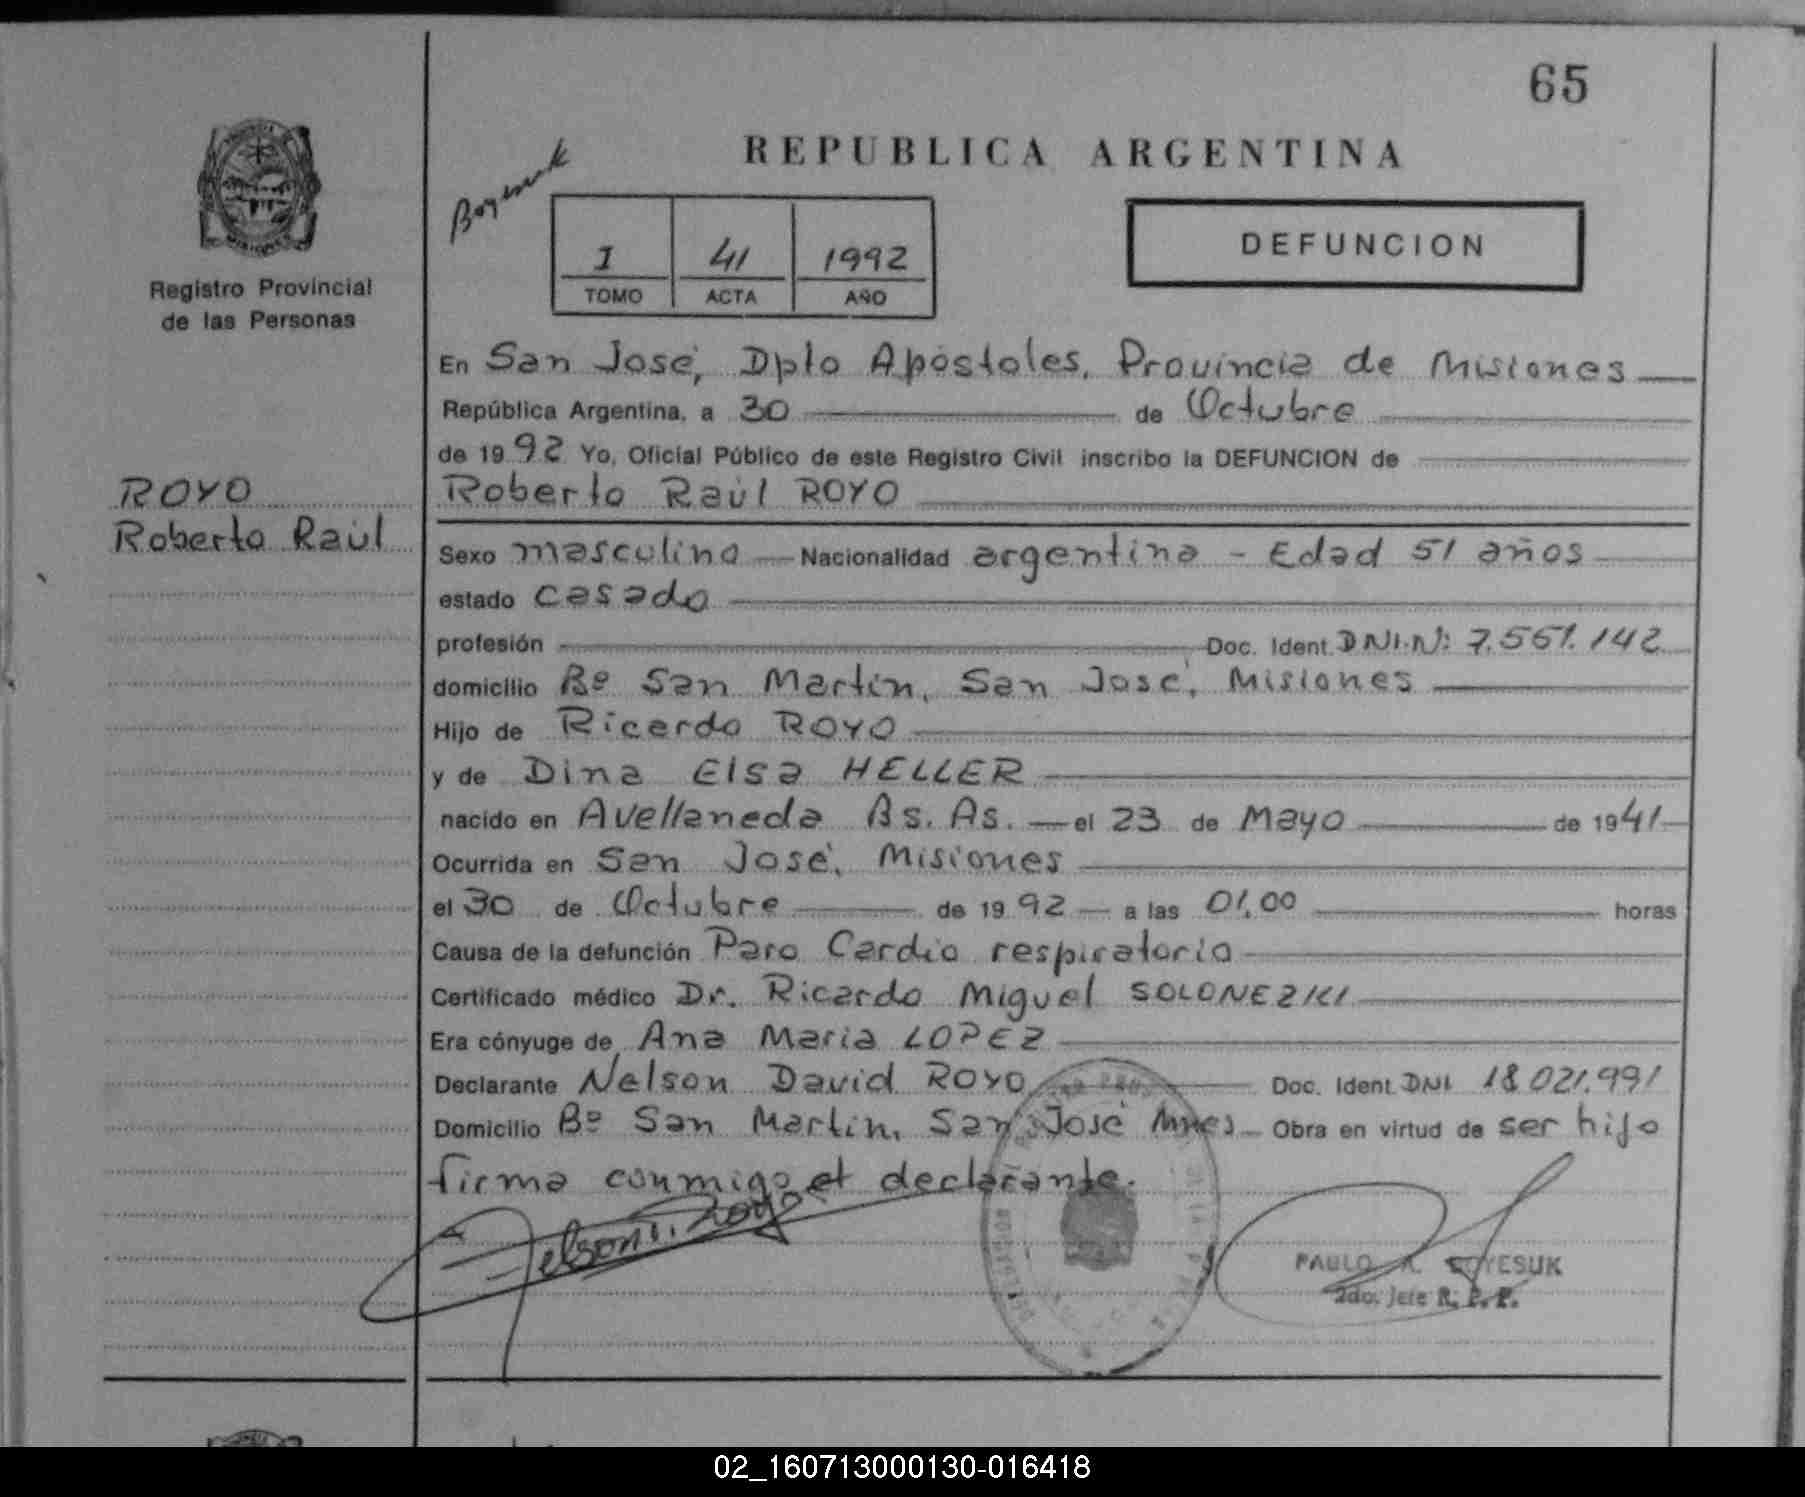 65
REPUBLICA ARGENTINA
Boyesuk
I 41 1992
TOMO ACTA AÑO
DEFUNCION
MISIONES
Registro Provincial
de las Personas
ROYO
Roberto Raúl
En San José, Dpto Apóstoles, Provincia de Misiones
República Argentina, a 30 de Octubre
de 1992 Yo, Oficial Público de este Registro Civil inscribo la DEFUNCION de
Roberto Raúl ROYO
Sexo masculino Nacionalidad argentina - Edad 51 años
estado casado
profesión Doc. Ident. DNI.N: 7.561.142
domicilio Bº San Martín, San José, Misiones
Hijo de Ricardo ROYO
y de Dina Elsa HELLER
nacido en Avellaneda Bs. As. el 23 de Mayo de 1941
Ocurrida en San José, Misiones
el 30 de Octubre de 1992 a las 01,00 horas
Causa de la defunción Paro Cardio respiratorio
Certificado médico Dr. Ricardo Miguel SOLONEZKI
Era cónyuge de Ana María LOPEZ
Declarante Nelson David ROYO Doc. Ident. DNI 18.021.991
Domicilio Bº San Martín, San José Mnes Obra en virtud de ser hijo
firma conmigo el declarante.
Nelson D. Royo
PABLO A. BOYESUK
2do. Jefe R. P. P.
02_160713000130-016418